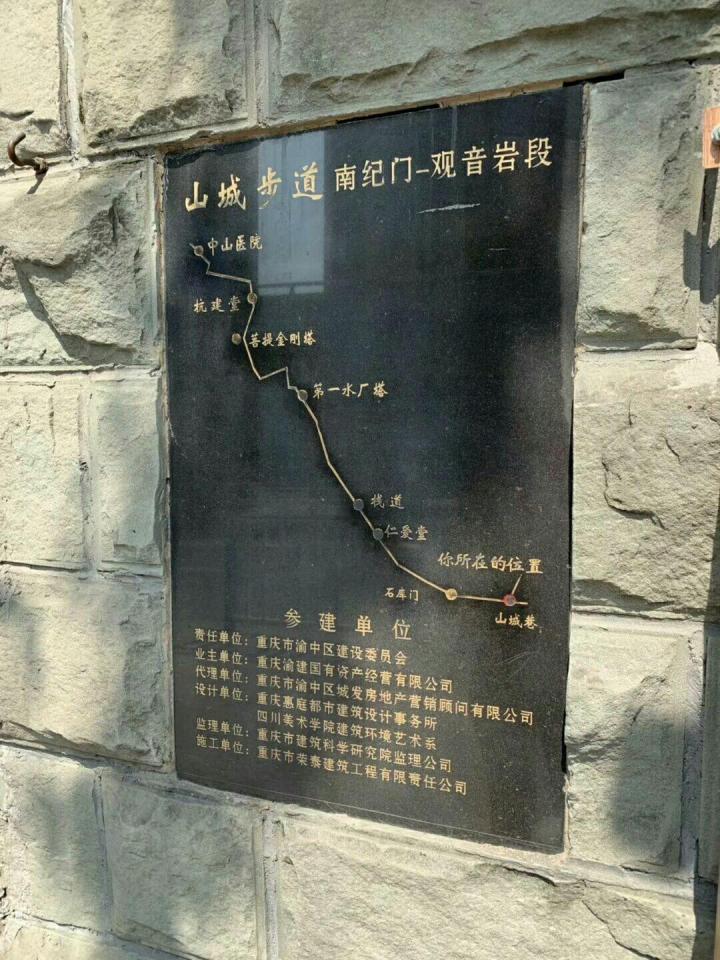 山城步道 南纪门-观音岩段
中山医院
杭建堂
菩提金刚塔
第一水厂塔
栈道
仁爱堂
你所在的位置
石库门
山城巷
参建单位
责任单位：重庆市渝中区建设委员会
业主单位：重庆渝建国有资产经营有限公司
代理单位：重庆市渝中区城发房地产营销顾问有限公司
设计单位：重庆惠庭都市建筑设计事务所
四川美术学院建筑环境艺术系
监理单位：重庆市建筑科学研究院监理公司
施工单位：重庆市荣泰建筑工程有限责任公司